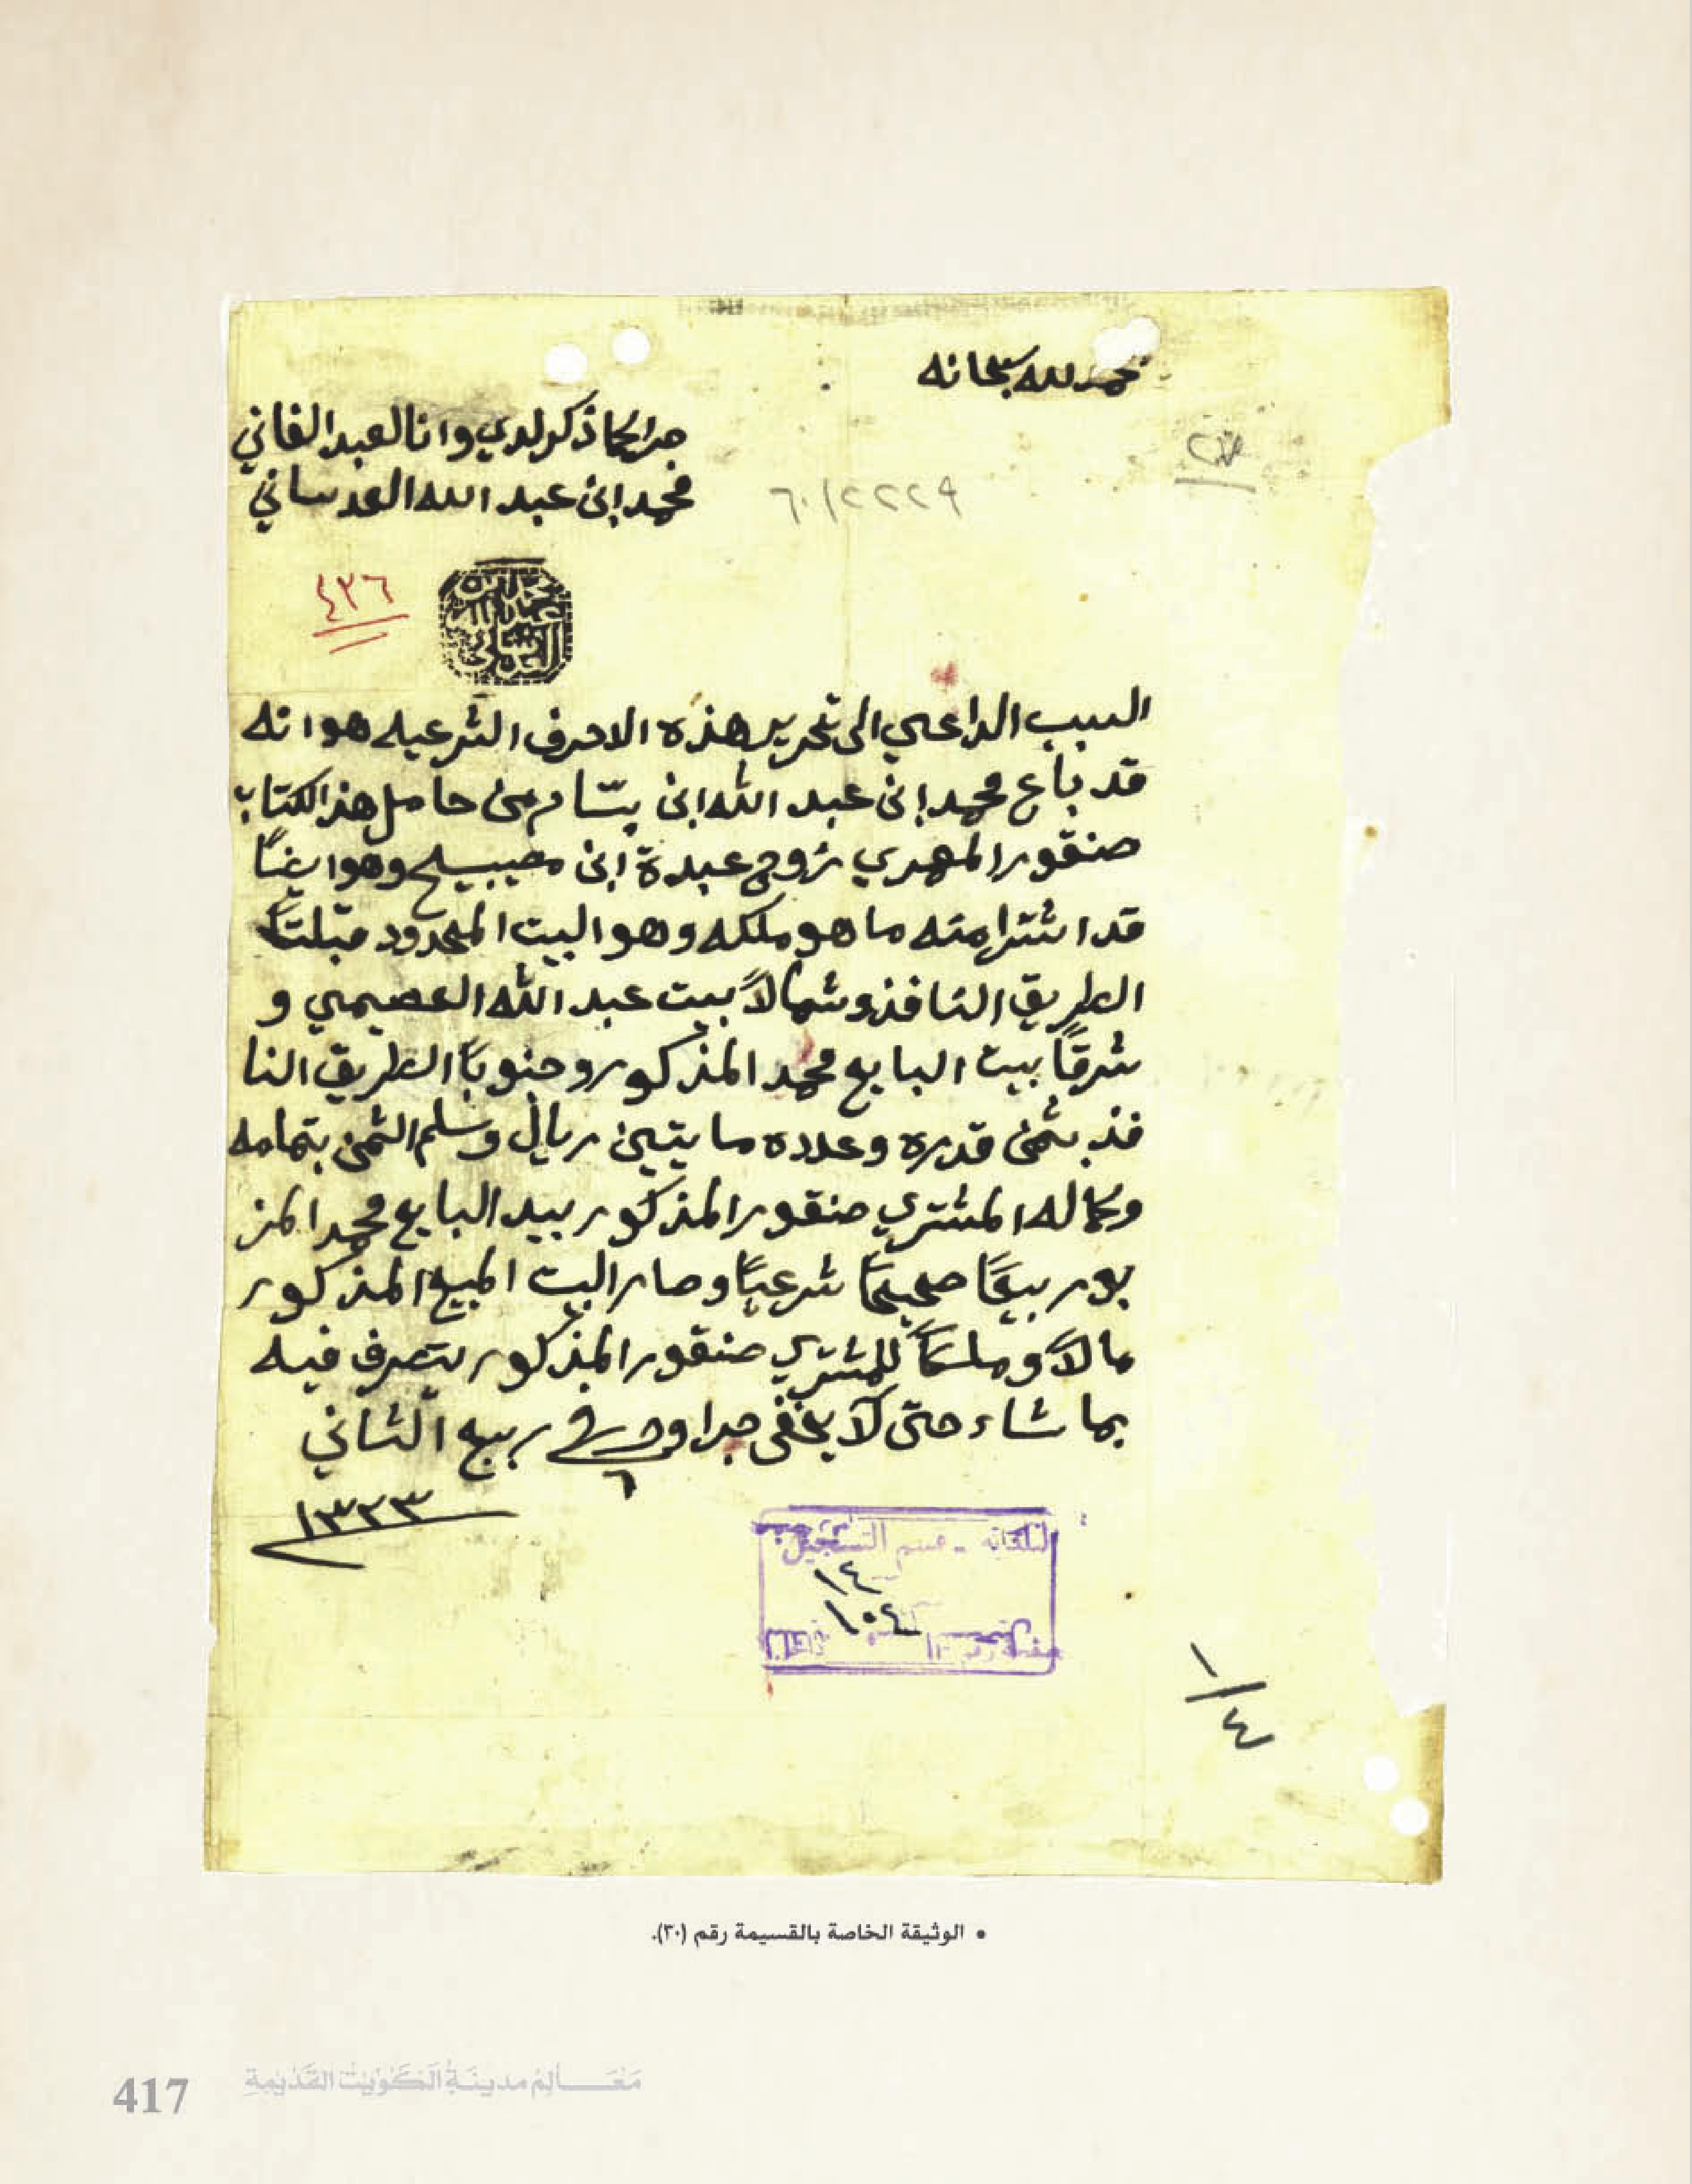 نحمد لله سبحانه
جرا لما ذكر لدي وانا العبد الفاني
محمد ابن عبد الله العدساني
٦٠/٢٢٢٩
٤٣٦
السبب الداعي الى تحرير هذه الاحرف الشرعيه هو انه
قد باع محمد ابن عبد الله ابن بسّام من حامل هذا الكتاب
صنقور المهري زوج عبدة ابن مصيبيح وهو ايضًا
قد اشترا منه ما هو ملكه وهو البيت المحدود قبلتًا
الطريق النافذ وشمالًا بيت عبد الله العصيمي و
شرقًا بيت البايع محمد المذكور وجنوبًا الطريق النا
فذ بثمن قدره وعدده مايتين ريال وسلم الثمن بتمامه
وكماله المشتري صنقور المذكور بيد البايع محمد المز
بور بيعًا صحيحًا شرعيًا وصار البيت المبيع المذكور
مالًا وملكًا للمشتري صنقور المذكور يتصرف فيه
بما شاء حتى لا يخفى جرا وحرر في ٦ ربيع الثاني
١٣٢٣
قسم التسجيل
١٤
١٠٤
١/٤
• الوثيقة الخاصة بالقسيمة رقم (٣٠).
417 مَعَالِمُ مدينَةِ الكُوَيْت القَدِيمَةِ